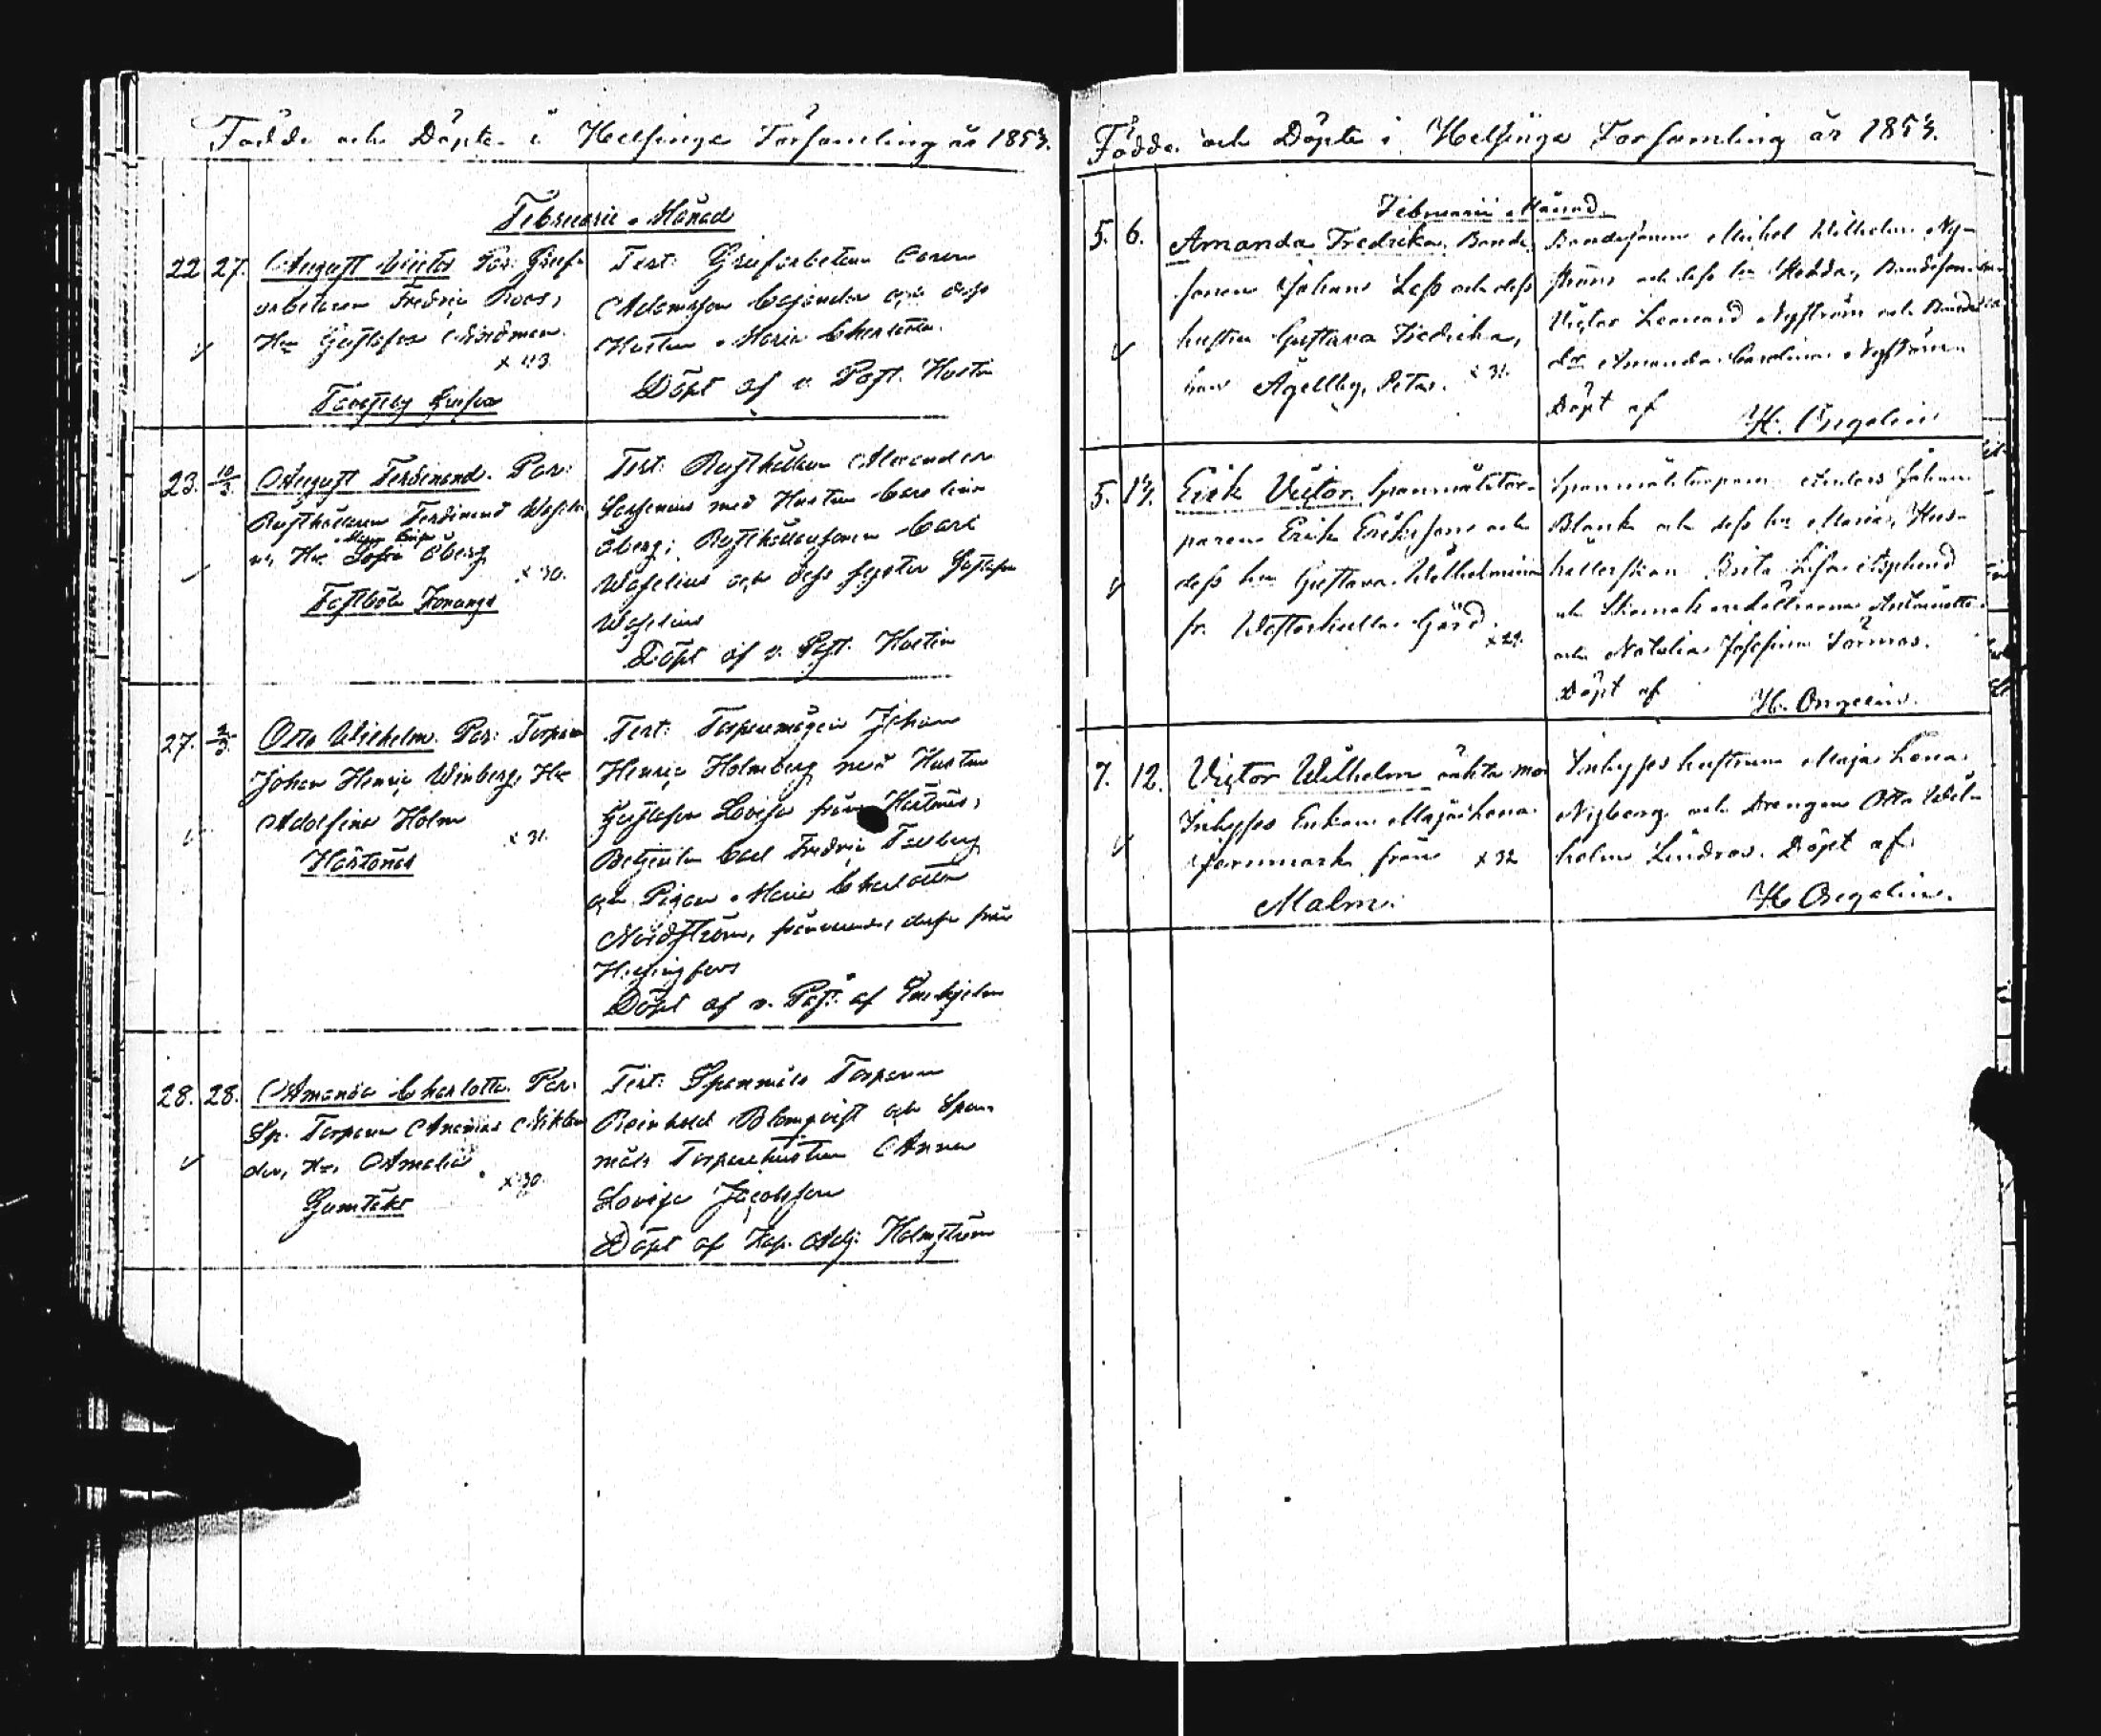 Födde och Döpte i Helsinge Församling år 1853.
Februarii Månad
22 27. August Victor Par: Gruf-
arbetaren Fredric Roos,
Hu Gustafva Nordman.
x 43.
Tavastby Grufva
Test: Grufarbetaren
Adamsson Cajander och dess
Hustru Maria Charlotta.
Döpt af v. Past. Hustin
23. 10/3. August Ferdinand. Par:
Rusthållaren Ferdinand Wase
Hu Sofia Öberg
x 30.
Fastböle
Test: Rusthållaren Alexander
med Hustru Carolina
Öberg; Rusthållaresonen Carl
Waselius och dess syster Gustafva
Waselius
Döpt af v. Past. Hustin
27. 2/3. Otto Wilhelm. Par: Torparen
Johan Henric Winberg, Hu
Adolfina Holm
x 31.
Hertonäs
Test: Torparemågen Johan
Henric Holmberg med Hustru
Gustafva Lovisa från Hertonäs,
Betjenten Carl Fredric
och Pigan Maria Charlotta
Nordström, frånvarande, dessa från
Helsingfors
Döpt af v. Past. af Enehjelm
28. 28. Amanda Charlotta. Par:
Sp. Torparen Ananias Niklan
der, Hu, Amalia
x 30.
Gumtäkt
Test: Spannmåls Torparen
Reinhold Blomqvist och Span-
måls Torparehustrun Anna
Lovisa Jacobsson
Döpt af Kap. Adj: Holmström
Födde och Döpte i Helsinge Församling år 1853.
Februarii Månad
5. 6. Amanda Fredrika. Bonde-
sonen Johan Lass och dess
hustru Gustava Fredrika,
från Ågelby, Petas. x 31.
Bondesonen Michel Wilhelm Ny-
ström och dess hu Hedda, Bondesonen
Victor Leonard Nyström och Bonde
dr Amanda Carolina Nyström
Döpt af
H. Ongelin
5. 13. Erik Victor. Spannmålstor-
paren Erik Eriksson och
dess hu Gustava Wilhelmina
fr. Westerkulla Gård.
x 29.
Spannmålstorparen Anders Johan
Blank och dess hu Maria, Hus-
hållerskan Brita Lisa Asplund
och Antoinette
och Natalia Josefina
Döpt af
H. Ongelin.
7. 12. Victor Wilhelm oäkta mor
Inhyses Enkan Maja Lena
från x 32
Malm.
Inhyses hustrun Maja Lena
Nyberg och Drengen Otto Wil-
helm Lindroos. Döpt af
H. Ongelin.